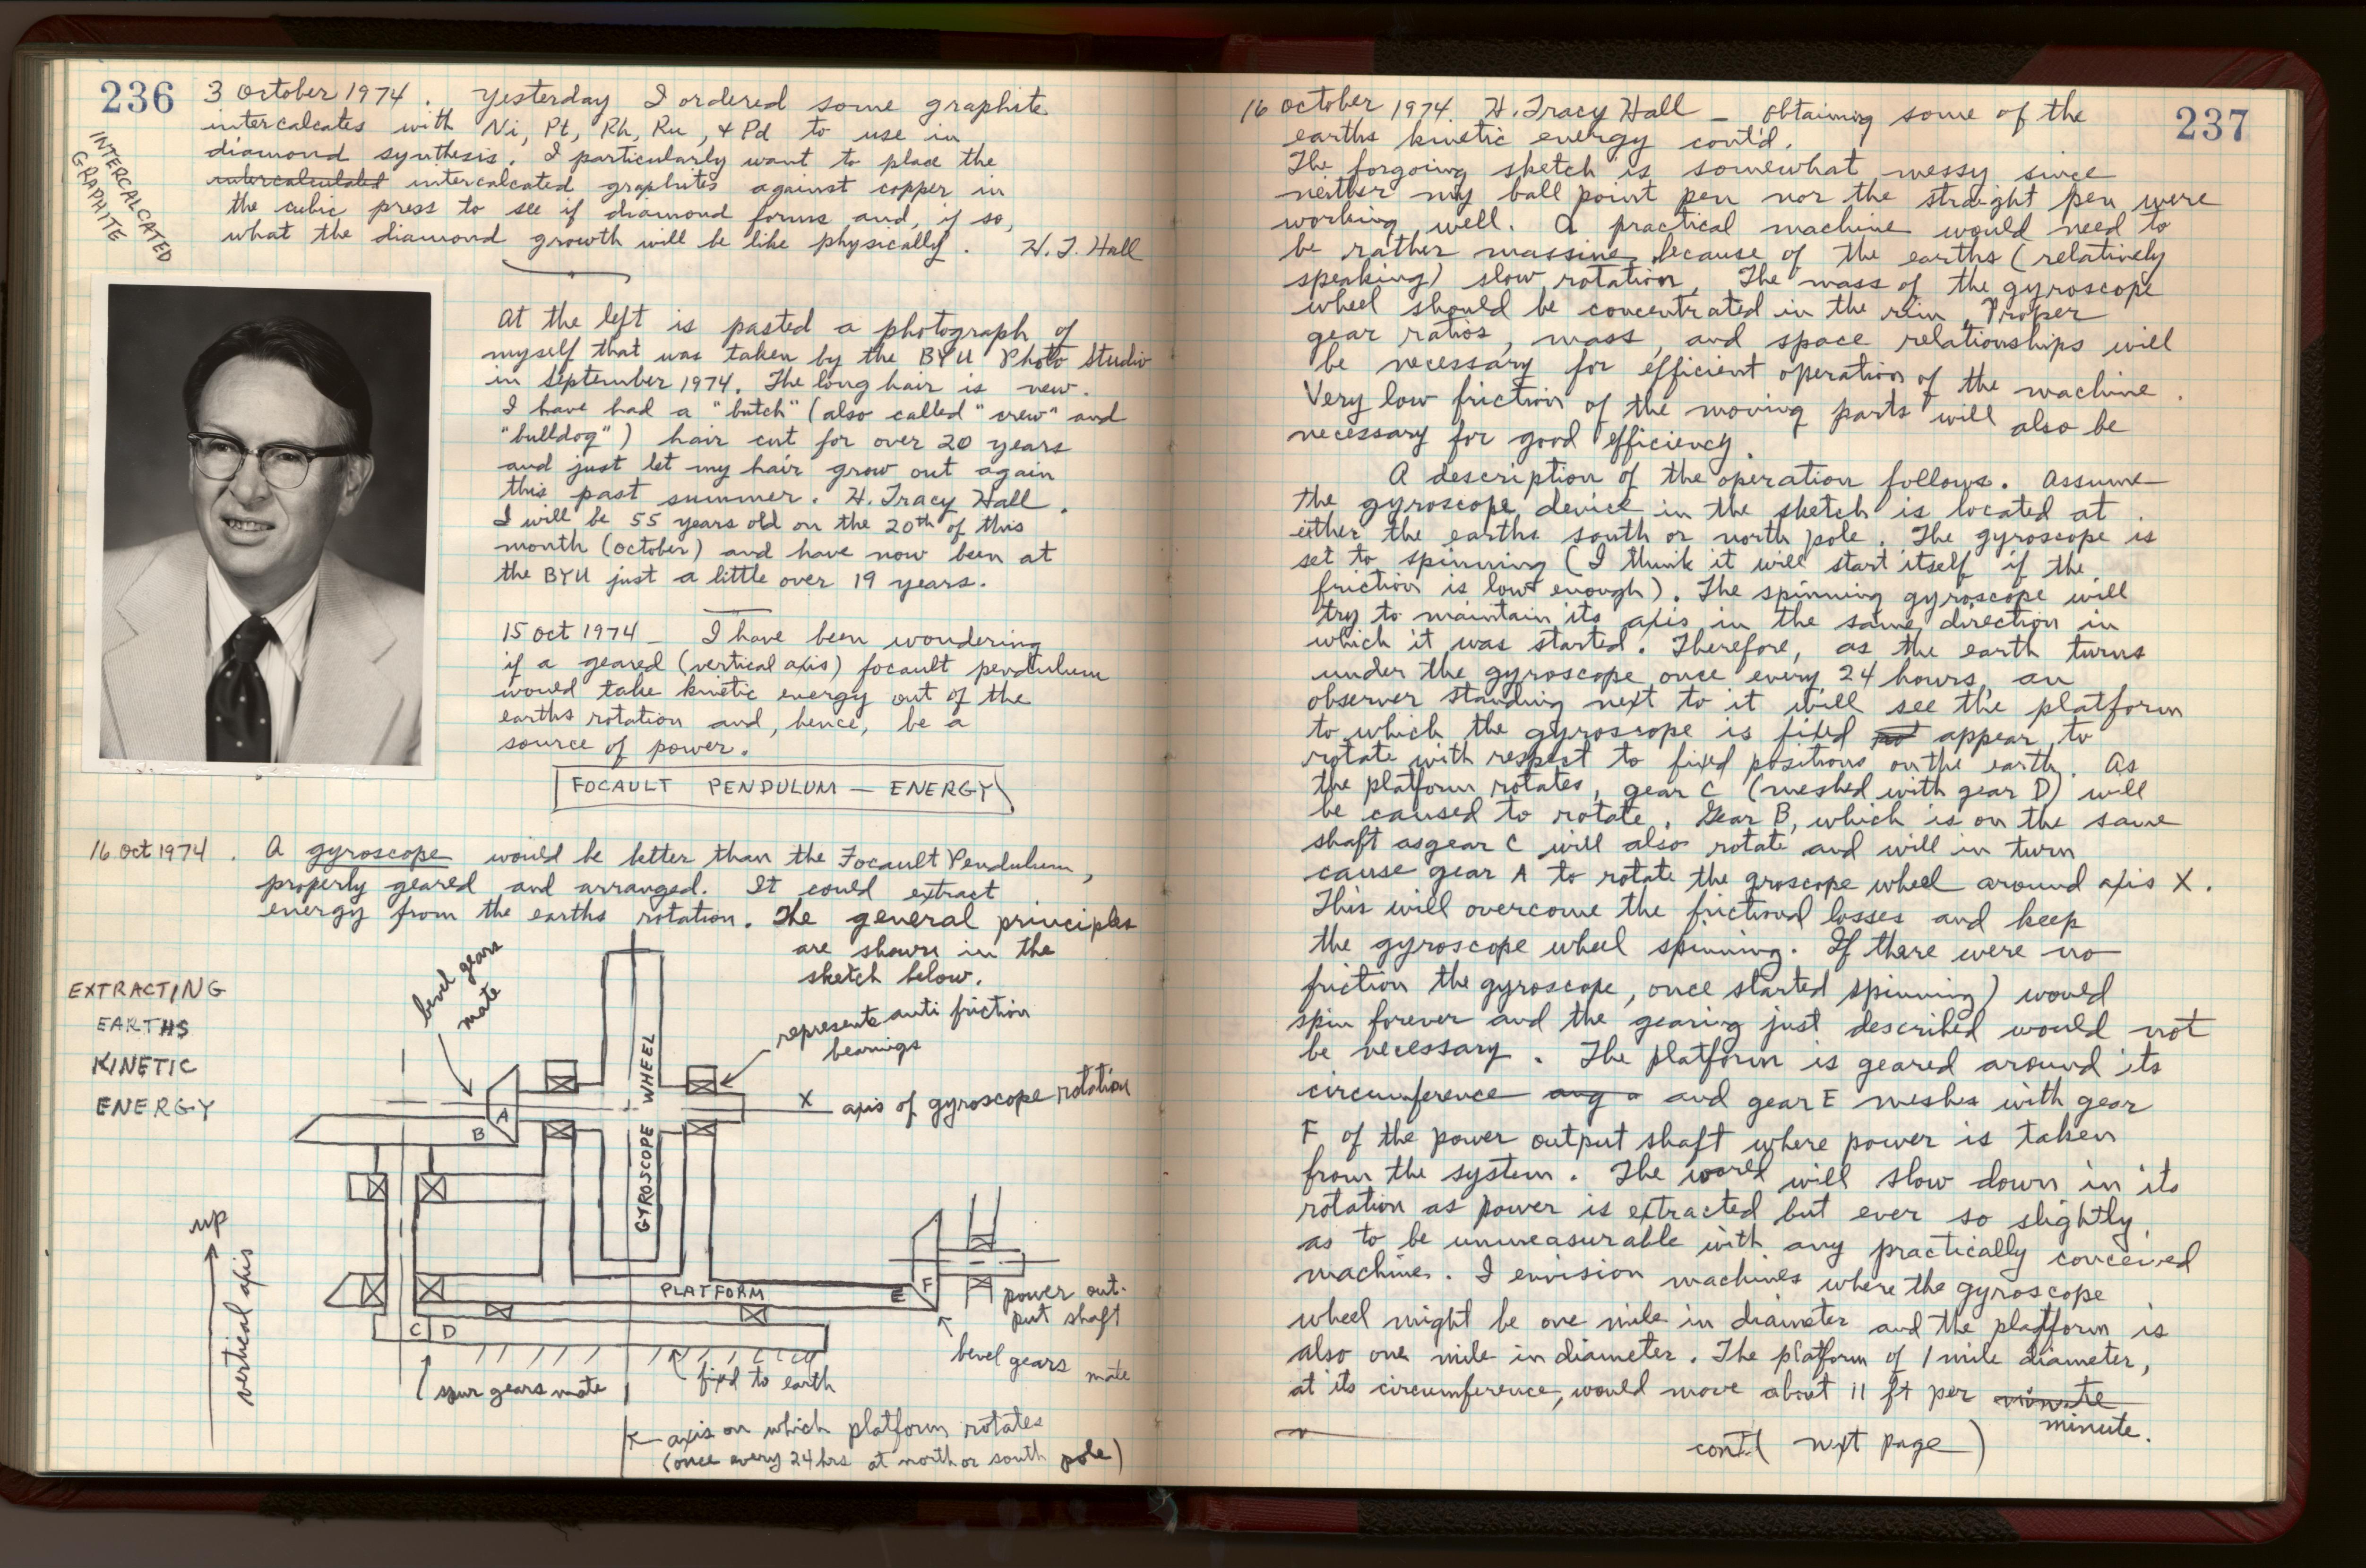 236
3 October 1974. Yesterday I ordered some graphite
intercalcates with Ni, Pt, Rh, Ru, & Pd to use in
diamond synthesis. I particularly want to place the
intercalculated intercalcated graphites against copper in
the cubic press to see if diamond forms and, if so,
what the diamond growth will be like physically. H. T. Hall
INTERCALCATED
GRAPHITE
At the left is pasted a photograph of
myself that was taken by the BYU Photo Studio
in September 1974. The long hair is new.
I have had a "butch" (also called "crew" and
"bulldog") hair cut for over 20 years
and just let my hair grow out again
this past summer. H. Tracy Hall.
I will be 55 years old on the 20th of this
month (October) and have now been at
the BYU just a little over 19 years.
15 Oct 1974 - I have been wondering
if a geared (vertical axis) focault pendulum
would take kinetic energy out of the
earths rotation and, hence, be a
source of power.
FOCAULT PENDULUM - ENERGY
16 Oct 1974. A gyroscope would be better than the Focault Pendulum,
properly geared and arranged. It could extract
energy from the earths rotation. The general principles
are shown in the
sketch below.
EXTRACTING
EARTHS
KINETIC
ENERGY
bevel gears
mate
represents anti friction
bearings
GYROSCOPE WHEEL
X axis of gyroscope rotation
A
B
up
vertical axis
PLATFORM
E
F
power out-
put shaft
C D
bevel gears mate
spur gears mate
fixd to earth
axis on which platform rotates
(once every 24 hrs at north or south pole)
237
16 October 1974. H. Tracy Hall - Obtaining some of the
earths kinetic energy cont'd.
The forgoing sketch is somewhat messy since
neither my ball point pen nor the straight pen were
working well. A practical machine would need to
be rather massive because of the earths (relatively
speaking) slow rotation. The mass of the gyroscope
wheel should be concentrated in the rim. Proper
gear ratios, mass, and space relationships will
be necessary for efficient operation of the machine.
Very low friction of the moving parts will also be
necessary for good efficiency.
A description of the operation follows. Assume
the gyroscope device in the sketch is located at
either the earths south or north pole. The gyroscope is
set to spinning (I think it will start itself if the
friction is low enough). The spinning gyroscope will
try to maintain its axis in the same direction in
which it was started. Therefore, as the earth turns
under the gyroscope once every 24 hours, an
observer standing next to it will see the platform
to which the gyroscope is fixed appear to
rotate with respect to fixed positions on the earth. As
the platform rotates, gear C (meshed with gear D) will
be caused to rotate. Gear B, which is on the same
shaft as gear C will also rotate and will in turn
cause gear A to rotate the groscope wheel around axis X.
This will overcome the frictional losses and keep
the gyroscope wheel spinning. If there were no
friction the gyroscope, once started spinning) would
spin forever and the gearing just described would not
be necessary. The platform is geared around its
circumference and gear E meshes with gear
F of the power output shaft where power is taken
from the system. The world will slow down in its
rotation as power is extracted but ever so slightly
as to be unmeasurable with any practically conceived
machine. I envision machines where the gyroscope
wheel might be one mile in diameter and the platform is
also one mile in diameter. The platform of 1 mile diameter,
at its circumference, would move about 11 ft per minute
minute.
cont( next page)